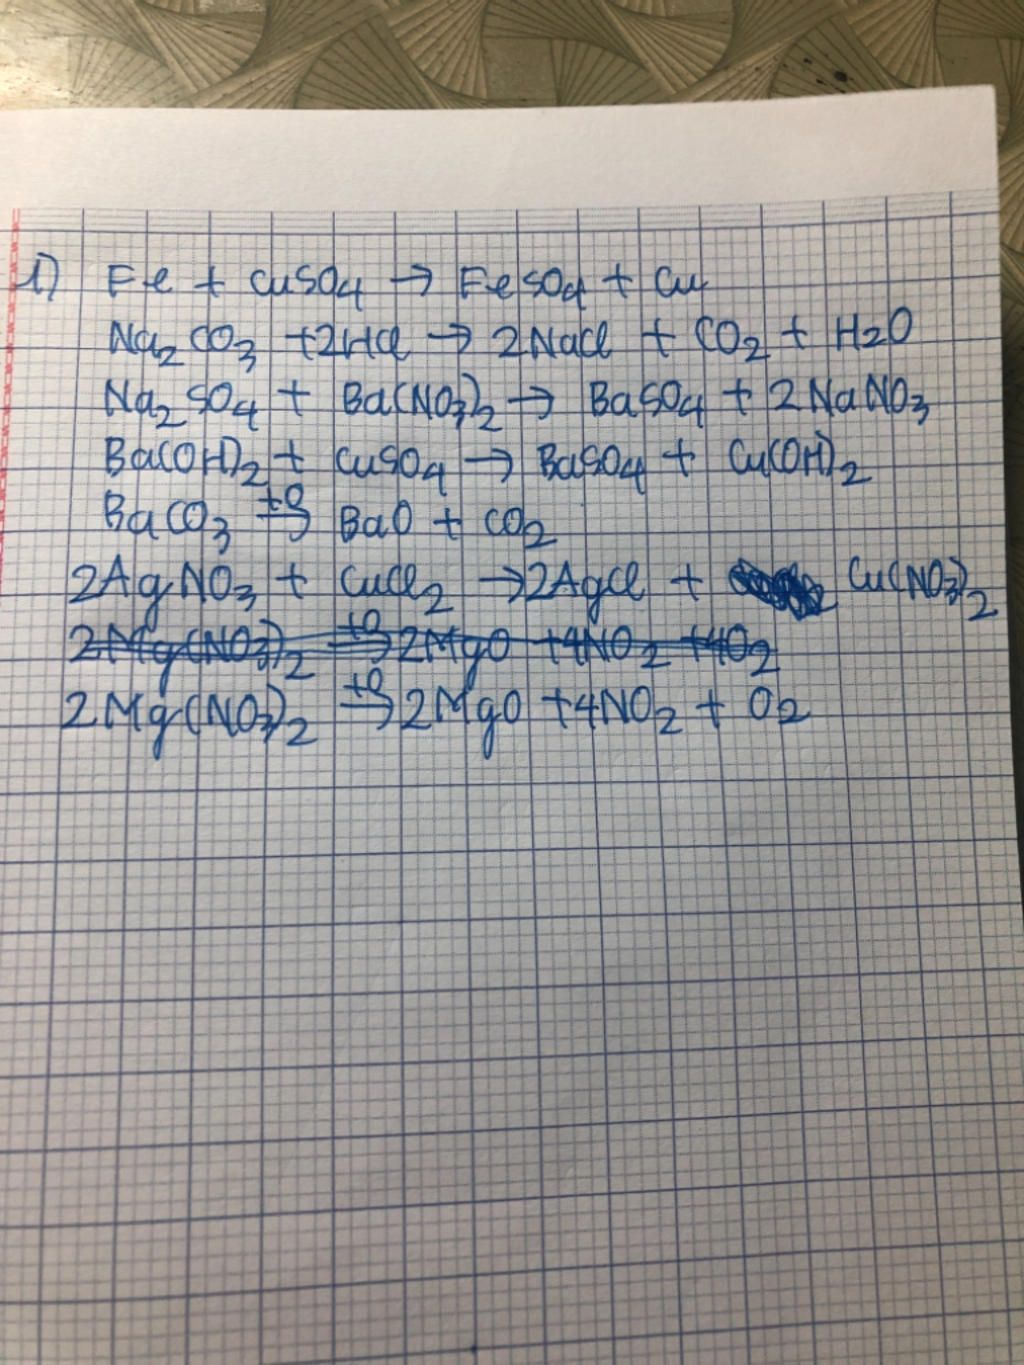 1) Fe + CuSO4 → FeSO4 + Cu
Na2CO3 +2HCl → 2NaCl + CO2 + H2O
Na2SO4 + Ba(NO3)2 → BaSO4 + 2NaNO3
Ba(OH)2 + CuSO4 → BaSO4 + Cu(OH)2
BaCO3 →t° BaO + CO2
2AgNO3 + CuCl2 → 2AgCl + Cu(NO3)2
2Mg(NO3)2 →t° 2MgO +4NO2 +4O2
2Mg(NO3)2 →t° 2MgO +4NO2 + O2